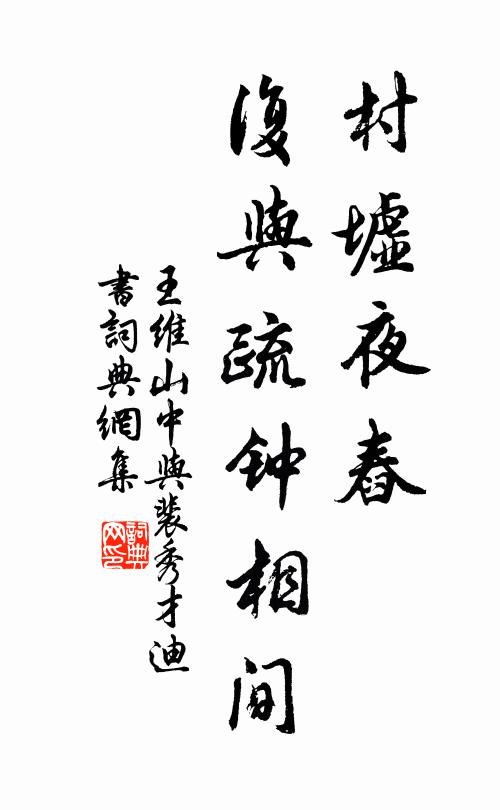 村墟夜舂
復與疏钟相间
王維山中與裴秀才迪
書詞典網集
詞典网印